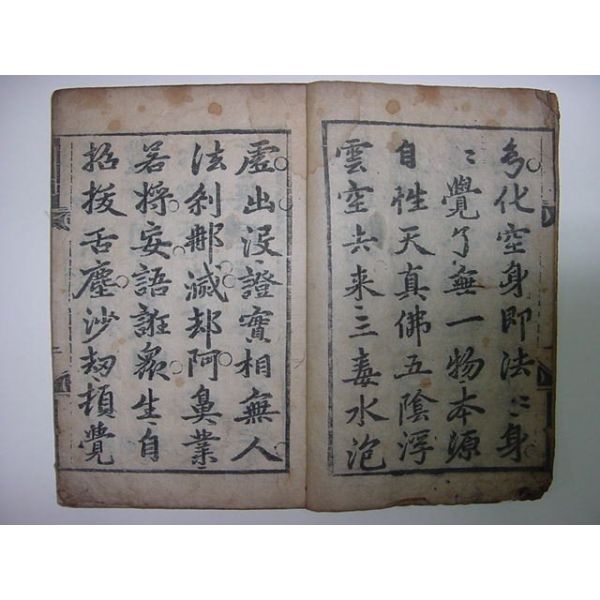 幻化空身即法〻身
〻覺了無一物本源
自性天真佛五陰浮
雲空去来三毒水泡
虛出没證實相無人
法刹那滅却阿鼻業
若將妄語誑衆生自
招拔舌塵沙刼頓覺